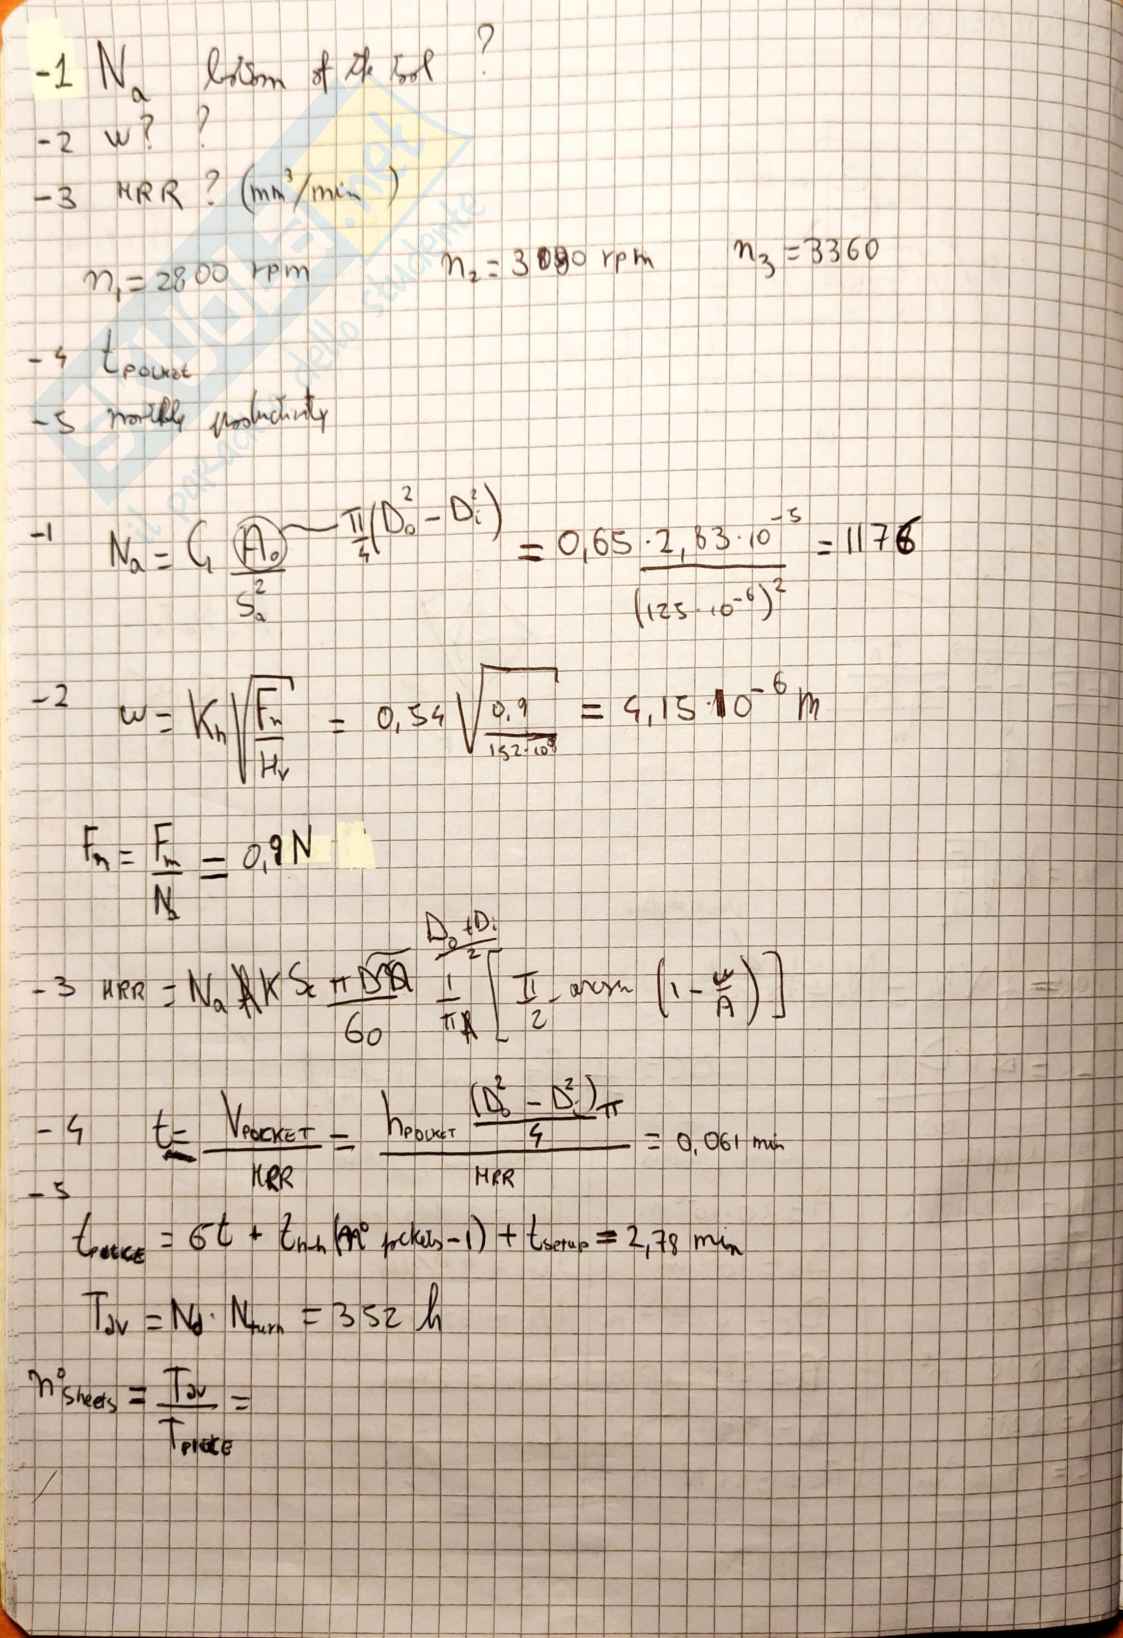 -1 Na bottom of the tool ?
-2 w? ?
-3 MRR ? (mm³/min)
n₁ = 2800 rpm n₂ = 3080 rpm n₃ = 3360
-4 t_POCKET
-5 monthly productivity
-1 Na = C₁ A₀/Sa² π/4 (D₀² - Di²) = 0,65 · 2,83·10⁻⁵/(125·10⁻⁶)² = 1176
-2 w = Kh √(Fn/Hv) = 0,54 √(0,9/152·10⁸) = 4,15·10⁻⁶ m
Fn = Fm/Na = 0,9 N
-3 MRR = Na K π/60 D₀+Di/2 1/π [π/2 - arcsin (1 - w/A)]
-4 t = V_POCKET/MRR = h_POCKET (D₀² - Di²)π/4 / MRR = 0,061 min
-5
t_PIECE = 6t + t_h-h (n° pockets-1) + t_setup = 2,78 min
Tav = Nd · Nturn = 352 h
n°sheets = Tav/T_PIECE =
SKUOLA.net
il paradiso dello studente